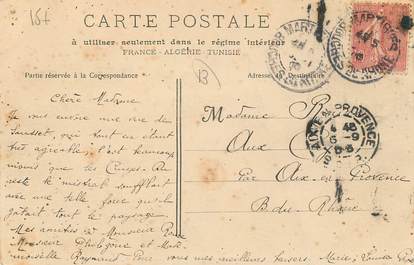 15f
CARTE POSTALE
à utiliser seulement dans le régime intérieur
FRANCE - ALGÉRIE - TUNISIE
Partie réservée à la Correspondance
Adresse du Destinataire
13
Chère Madame
Je vous envoie une vue de
Sausset, qui tout en étant
très agréable, l'est beaucoup
moins que Au
reste le mistral soufflait
avec une telle force qu'il
gatait tout le paysage.
Mes amitiés à Monsieur Roux
Monsieur Philogone et Made-
moiselle Raymond Pour vous mes meilleurs baisers. Marie-Louise
Madame
Aux
Par Aix-en-Provence
B.-du-Rhône
AIX-EN-PROVENCE